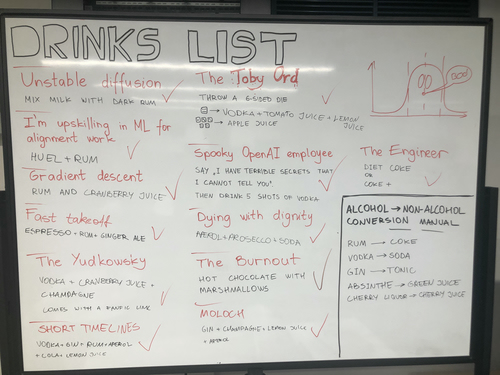 DRINKS LIST
Unstable diffusion
MIX MILK WITH DARK RUM
I'm upskilling in ML for
alignment work
HUEL + RUM
Gradient descent
RUM AND CRANBERRY JUICE
Fast takeoff
ESPRESSO + RUM + GINGER ALE
The Yudkowsky
VODKA + CRANBERRY JUICE +
CHAMPAGNE
COMES WITH A FANFIC LINK
SHORT TIMELINES
VODKA + GIN + RUM + APEROL
+ COLA + LEMON JUICE
The Toby Ord
THROW A 6-SIDED DIE
→ VODKA + TOMATO JUICE + LEMON
JUICE
→ APPLE JUICE
Spooky OpenAI employee
SAY "I HAVE TERRIBLE SECRETS THAT
I CANNOT TELL YOU".
THEN DRINK 5 SHOTS OF VODKA
Dying with dignity
APEROL + PROSECCO + SODA
The Burnout
HOT CHOCOLATE WITH
MARSHMALLOWS
MOLOCH
GIN + CHAMPAGNE + LEMON JUICE
+ APEROL
BOO!
The Engineer
DIET COKE
OR
COKE +
ALCOHOL → NON-ALCOHOL
CONVERSION MANUAL
RUM → COKE
VODKA → SODA
GIN → TONIC
ABSINTHE → GREEN JUICE
CHERRY LIQUOR → CHERRY JUICE